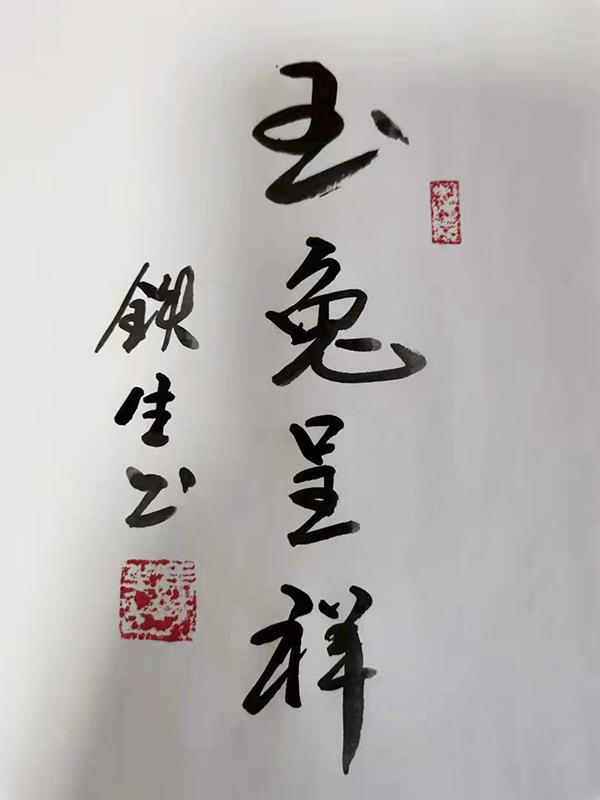 玉兔呈祥
鉄生书